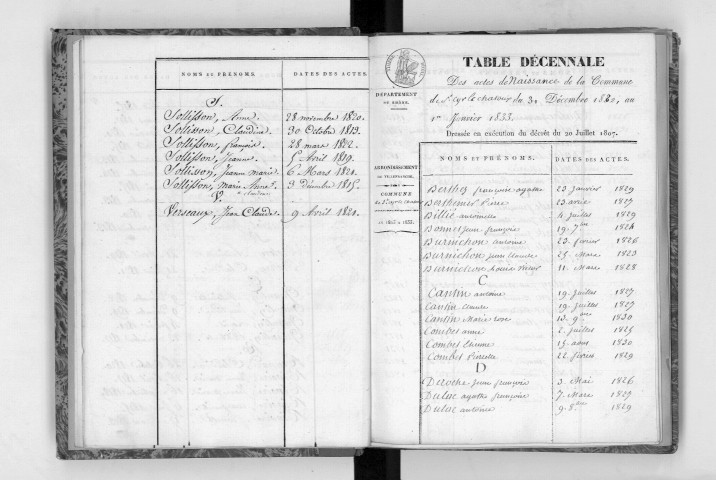 NOMS ET PRÉNOMS. DATES DES ACTES.
S.
Sollisson, Anne 28 novembre 1820.
Sollisson Claudine 30 Octobre 1813.
Sollisson, françois 28 mars 1822.
Sollisson, Jeanne 5 Avril 1819.
Sollisson, Jeanne marie 6 Mars 1821.
Sollisson, Marie Anne 3 Décembre 1815.
V.
Verseaux, Jean Claude. 9 Avril 1821.
TABLE DÉCENNALE
Des actes de Naissance de la Commune
de St cyr le chatoux du 31 Décembre 1822, au
1er Janvier 1833.
Dressée en exécution du décrêt du 20 Juillet 1807.
DÉPARTEMENT
DU RHONE.
ARRONDISSEMENT
DE VILLEFRANCHE.
COMMUNE
de St cyr le Chatoux
de 1823 à 1833.
NOMS ET PRÉNOMS. DATES DES ACTES.
Berthez françoise agathe 23 Janvier 1829
Berthinier Pierre 23 avril 1827
Billié antoinette 4 Juillet 1829
Bonnet Jean françois 19. 7bre 1824
Burnichon antoine 23. fevrier 1826
Burnichon Jean Claude 25. Mars 1823
11. Mars 1828
C
Cantin antoine 19. Juillet 1827
Cantin 19. Juillet 1827
Cantin Marie rose 13. 9bre 1830
Combes anne 2. Juillet 1825
Combes 15. aout 1830
Combes Pierrette 22. fevrier 1829
D
Deroche Jean françois 3. Mai 1826
Dulac agathe françoise 7. Mars 1827
Dulac antoine 9. 8bre 1829